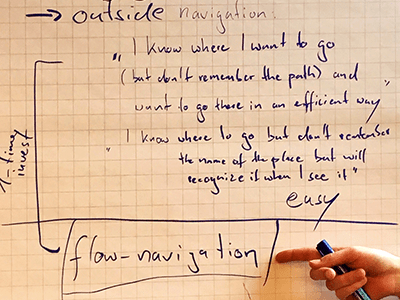 → outside navigation:
"I know where I want to go
(but don't remember the path) and
want to go there in an efficient way"
"I know where to go but don't remember
the name of the place but will
recognize it when I see it"
easy
1-time
invest
flow-navigation